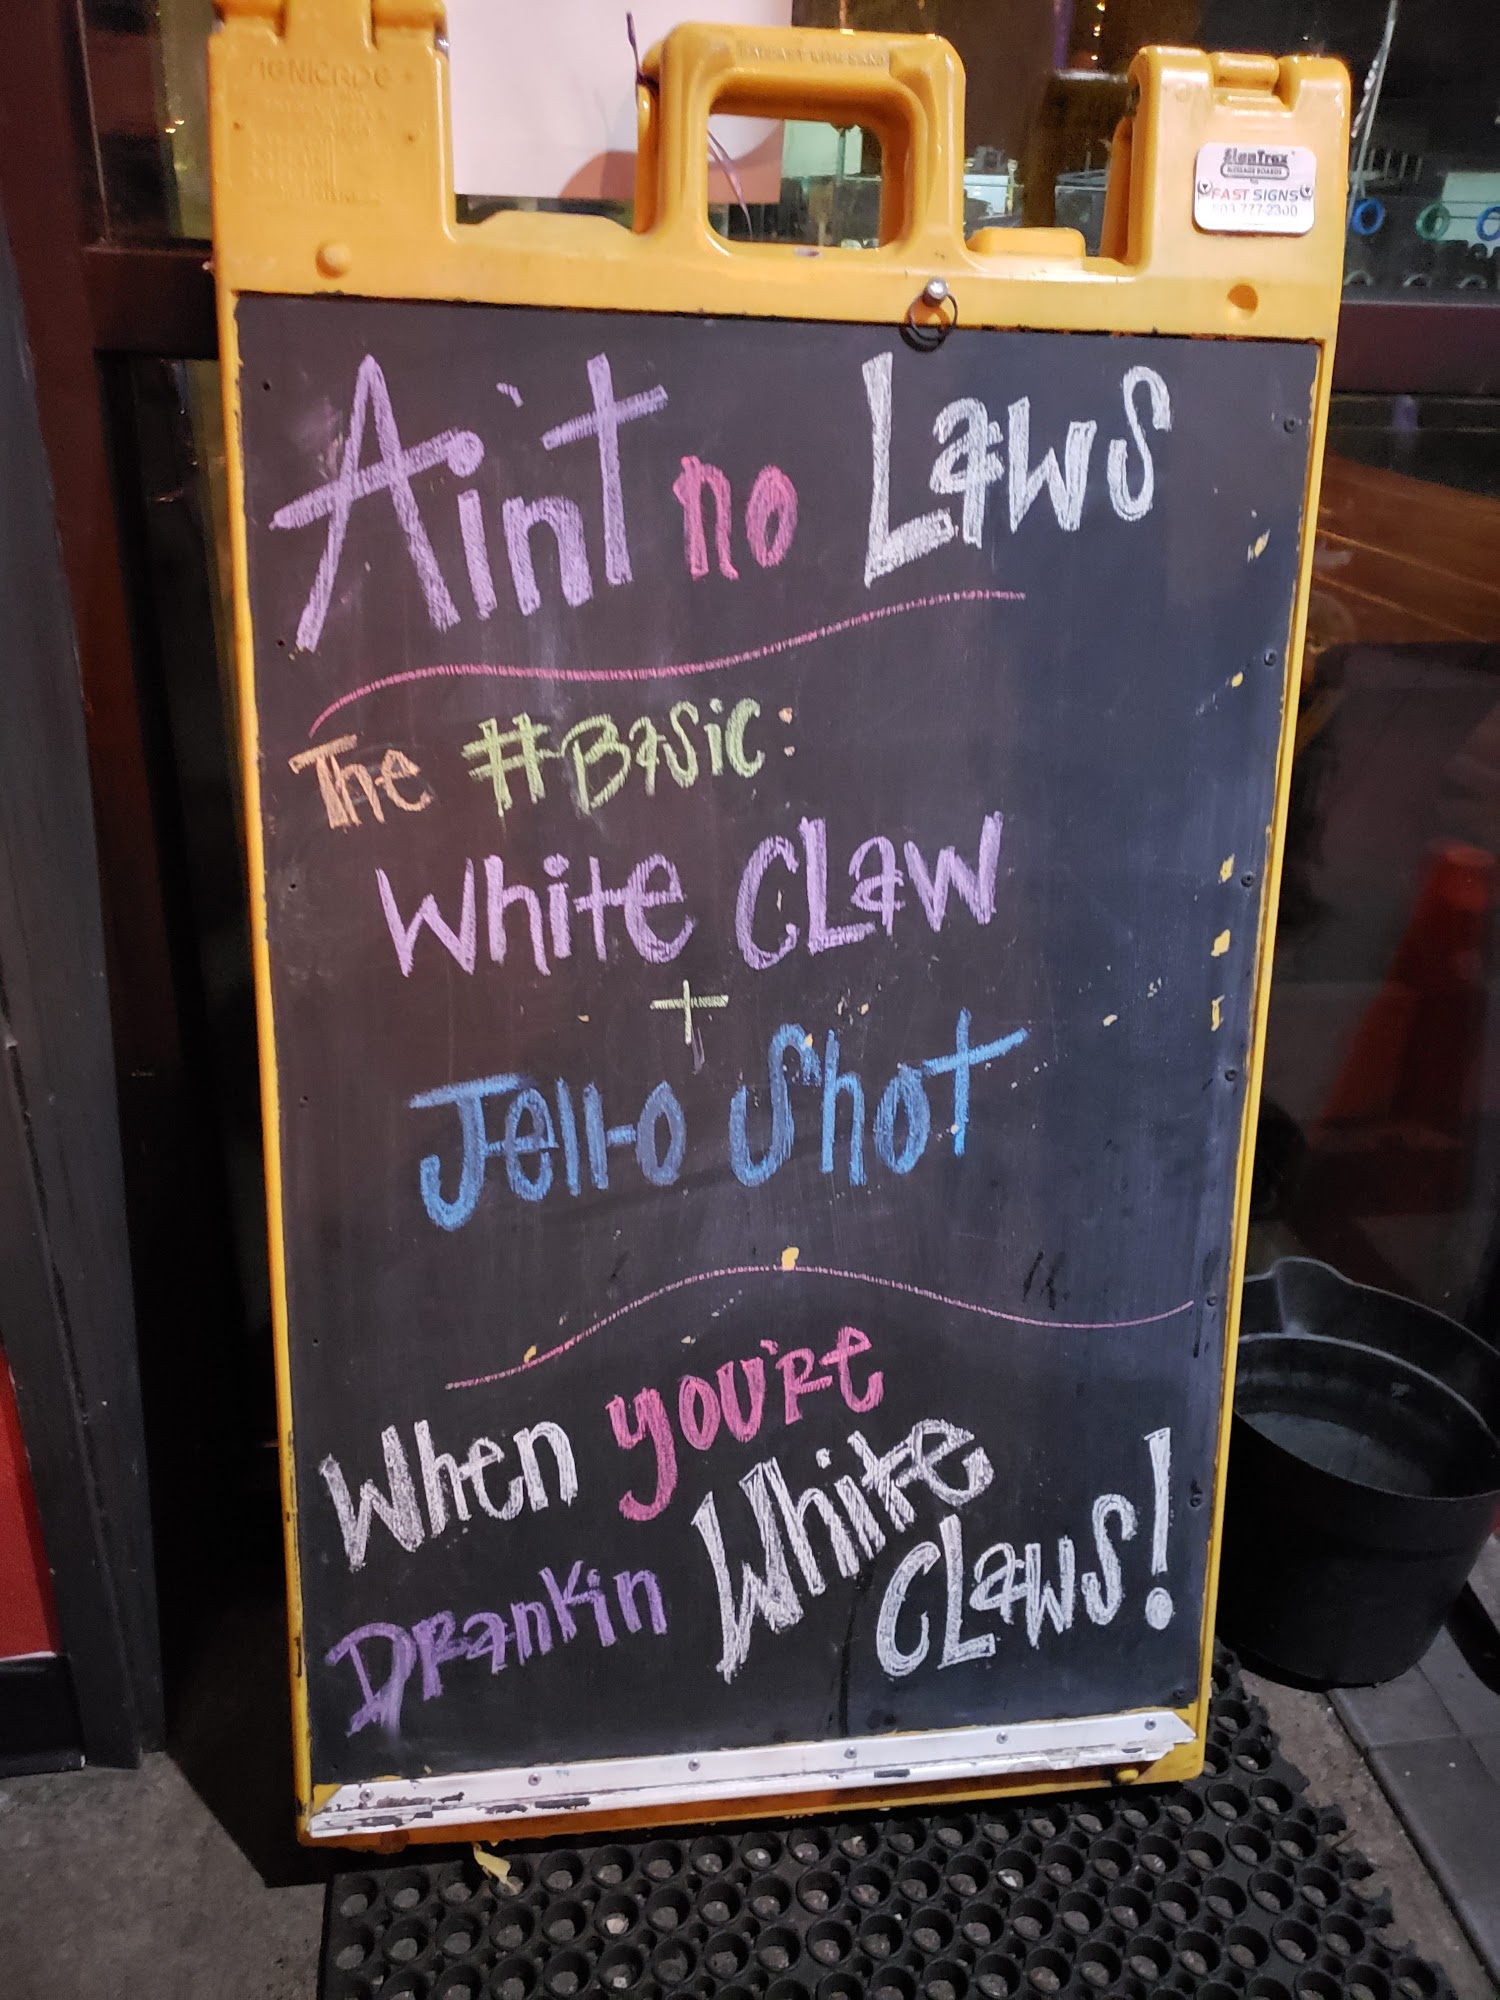 SignTrax
MESSAGE BOARDS
FAST SIGNS
503-777-2300
Ain't no Laws
The #Basic:
White Claw
+
Jell-o Shot
When you're
Drankin White
Claws!